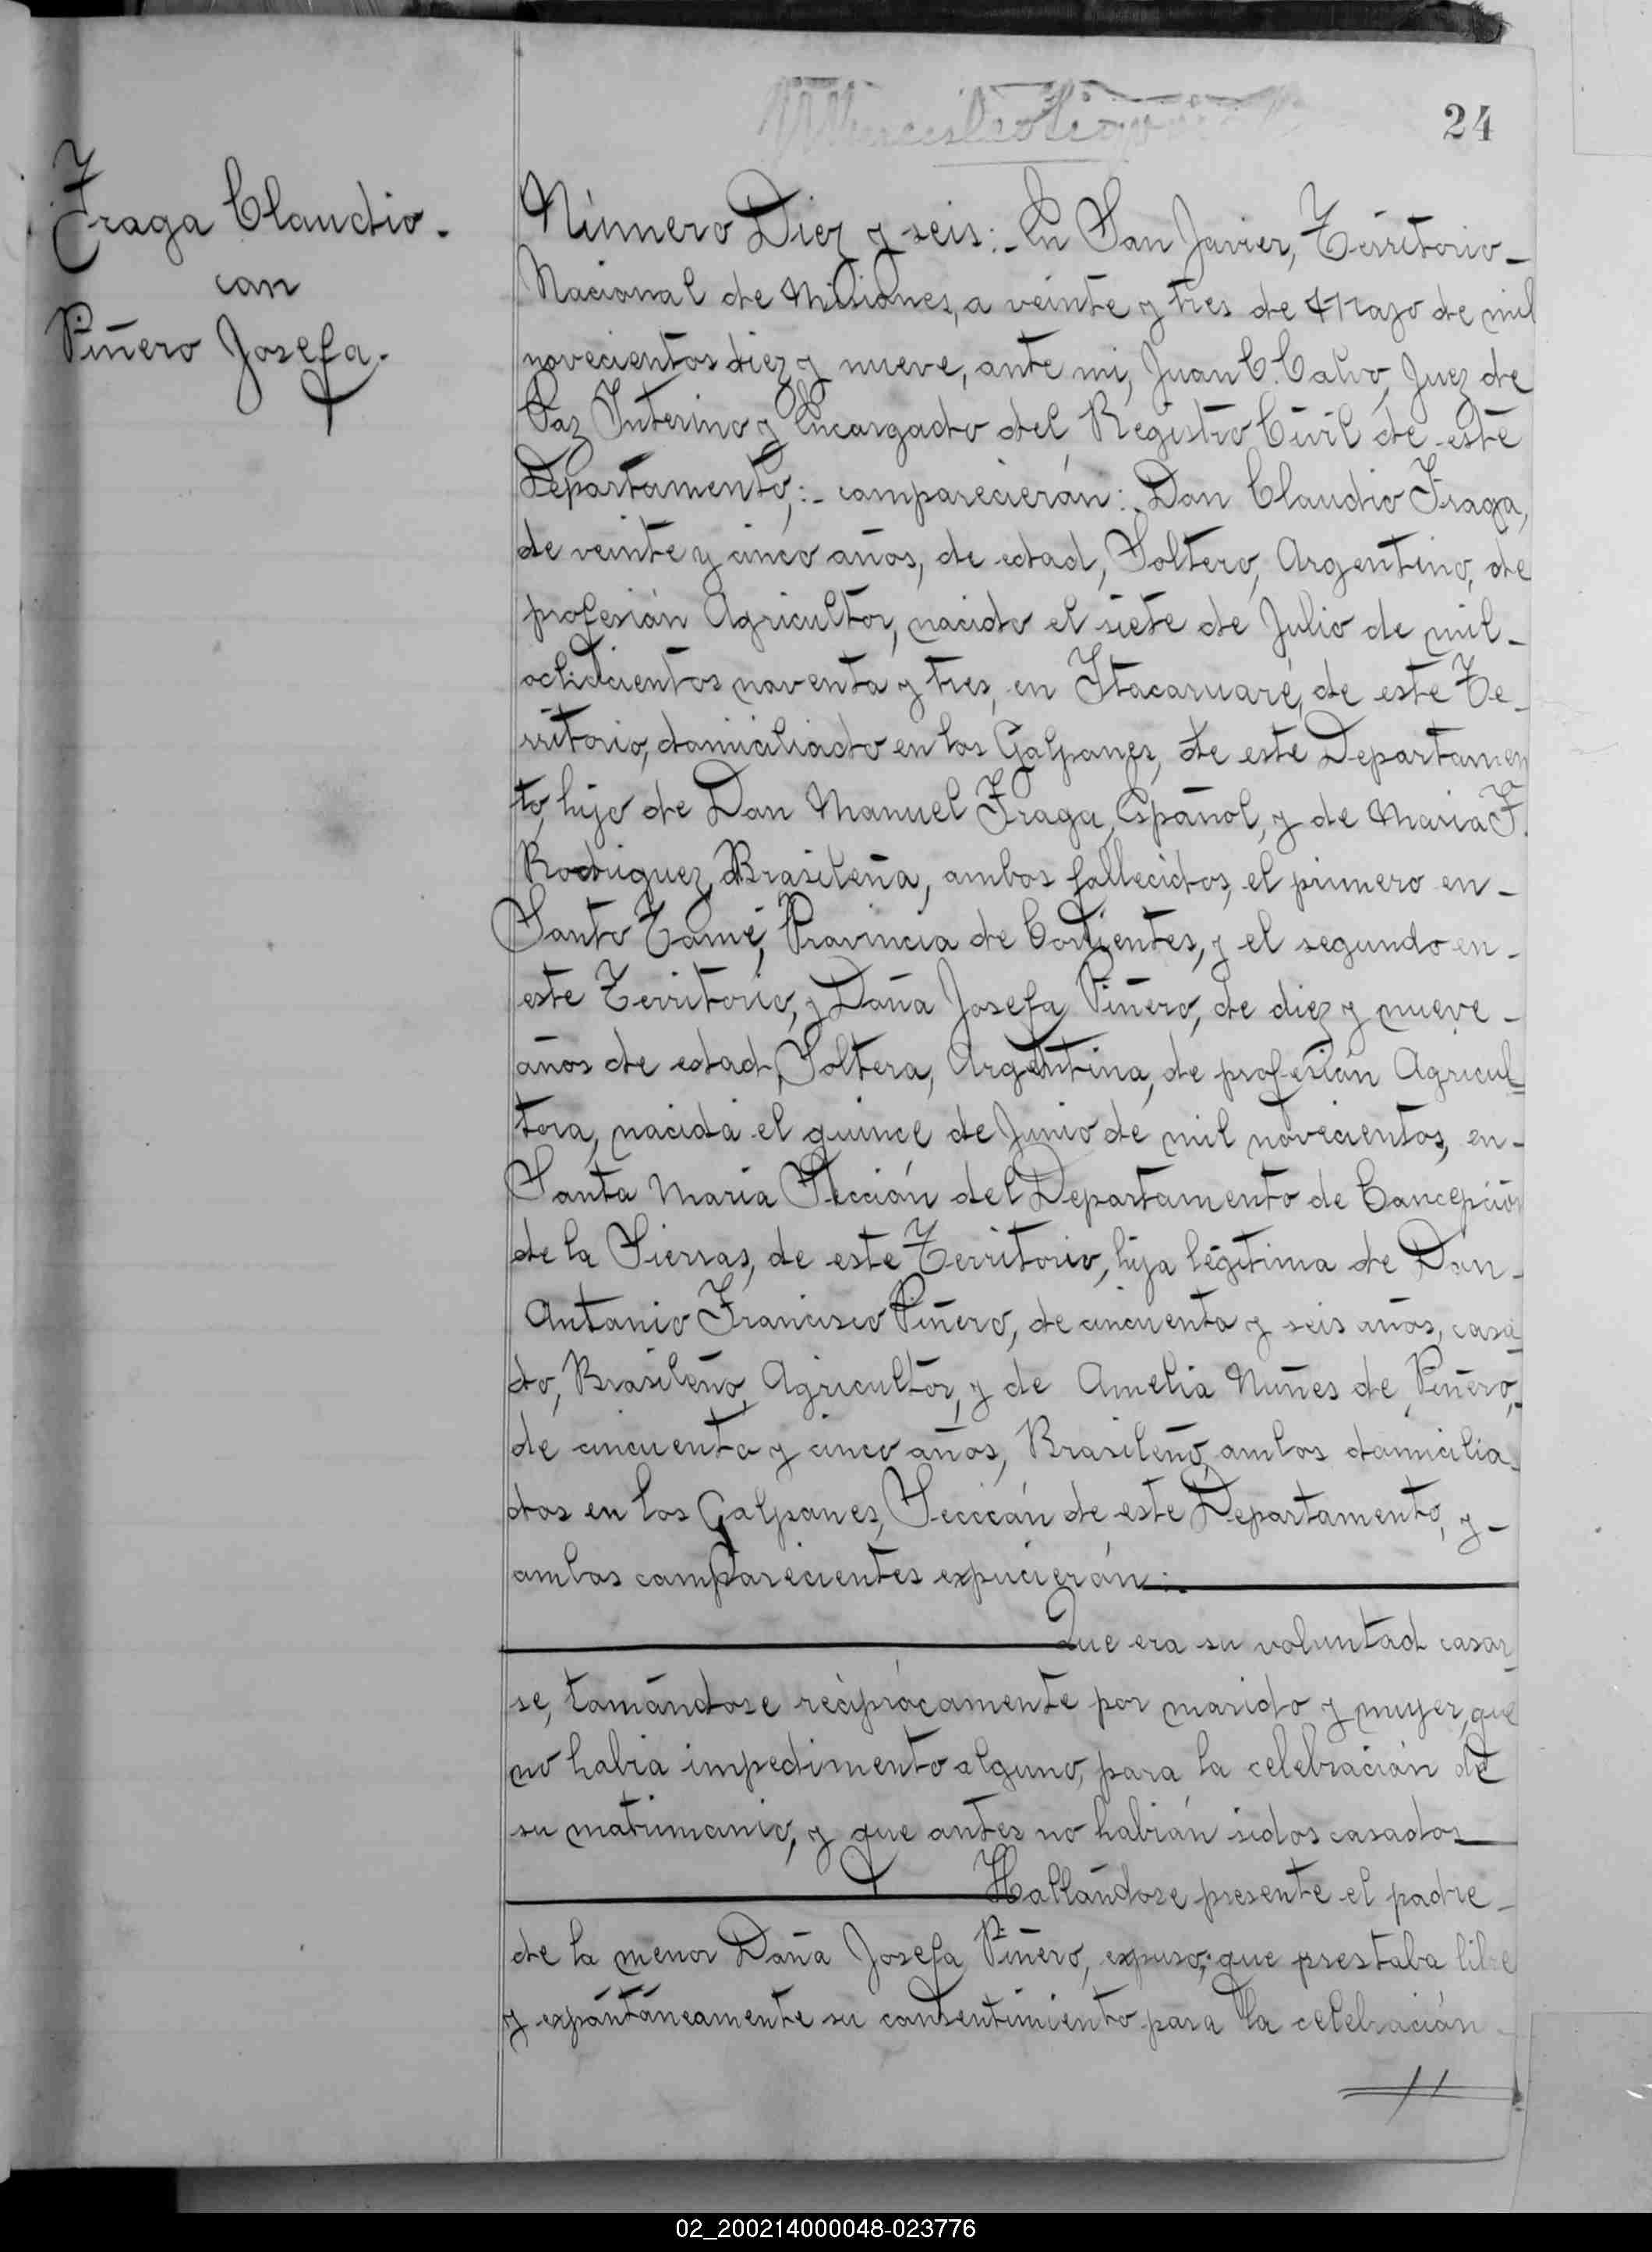 24
Fraga Claudio.
con
Piñero Josefa.
Número Diez y seis:- En San Javier, Territorio-
Nacional de Misiones, a veinte y tres de Mayo de mil
novecientos diez y nueve, ante mi, Juan C. Calvo, Juez de
Paz Interino y Encargado del Registro Civil de este
Departamento,:- comparecierán: Don Claudio Fraga,
de veinte y cinco años, de edad, Soltero, Argentino, de
profesión Agricultor, nacido el siete de Julio de mil-
ochocientos noventa y tres, en Itacaruaré, de este Te-
rritorio, domiciliado en los Galpones, de este Departamen
to, hijo de Don Manuel Fraga, Español, y de Maria F.
Rodriguez, Brasileña, ambos fallecidos, el primero en-
Santo Tomé, Provincia de Corrientes, y el segundo en-
este Territorio, y Doña Josefa Piñero, de diez y nueve-
años de edad, Soltera, Argentina, de profesión Agricul-
tora, nacida el quince de Junio de mil novecientos, en-
Santa Maria Sección del Departamento de Concepción
de la Sierras, de este Territorio, hija légitima de Don-
Antonio Francisco Piñero, de cincuenta y seis años, casa-
do, Brasileño, Agricultor, y de Amelia Nuñes de Piñero,-
de cincuenta y cinco años, Brasileño, ambos domicilia-
dos en los Galpones, Sección de este Departamento, y-
ambos comparecientes expucierán:-
Que era su voluntad casar-
se, tomándose recíprocamente por marido y muyer, que
no habia impedimento alguno, para la celebración de
su matrimonio, y que antes no habián sidos casados
Hallándose presente el padre-
de la menor Doña Josefa Piñero, expuso; que prestaba libre
y expántáneamente su consentimiento para la celebración-
//
02_200214000048-023776